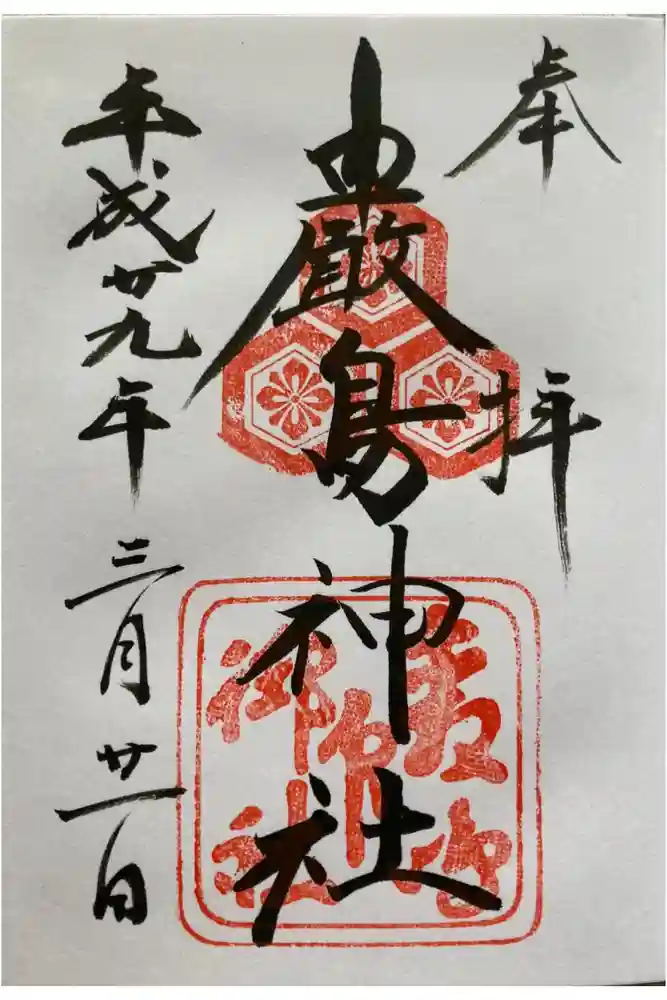 奉拝
嚴島神社
平成廿九年三月廿一日